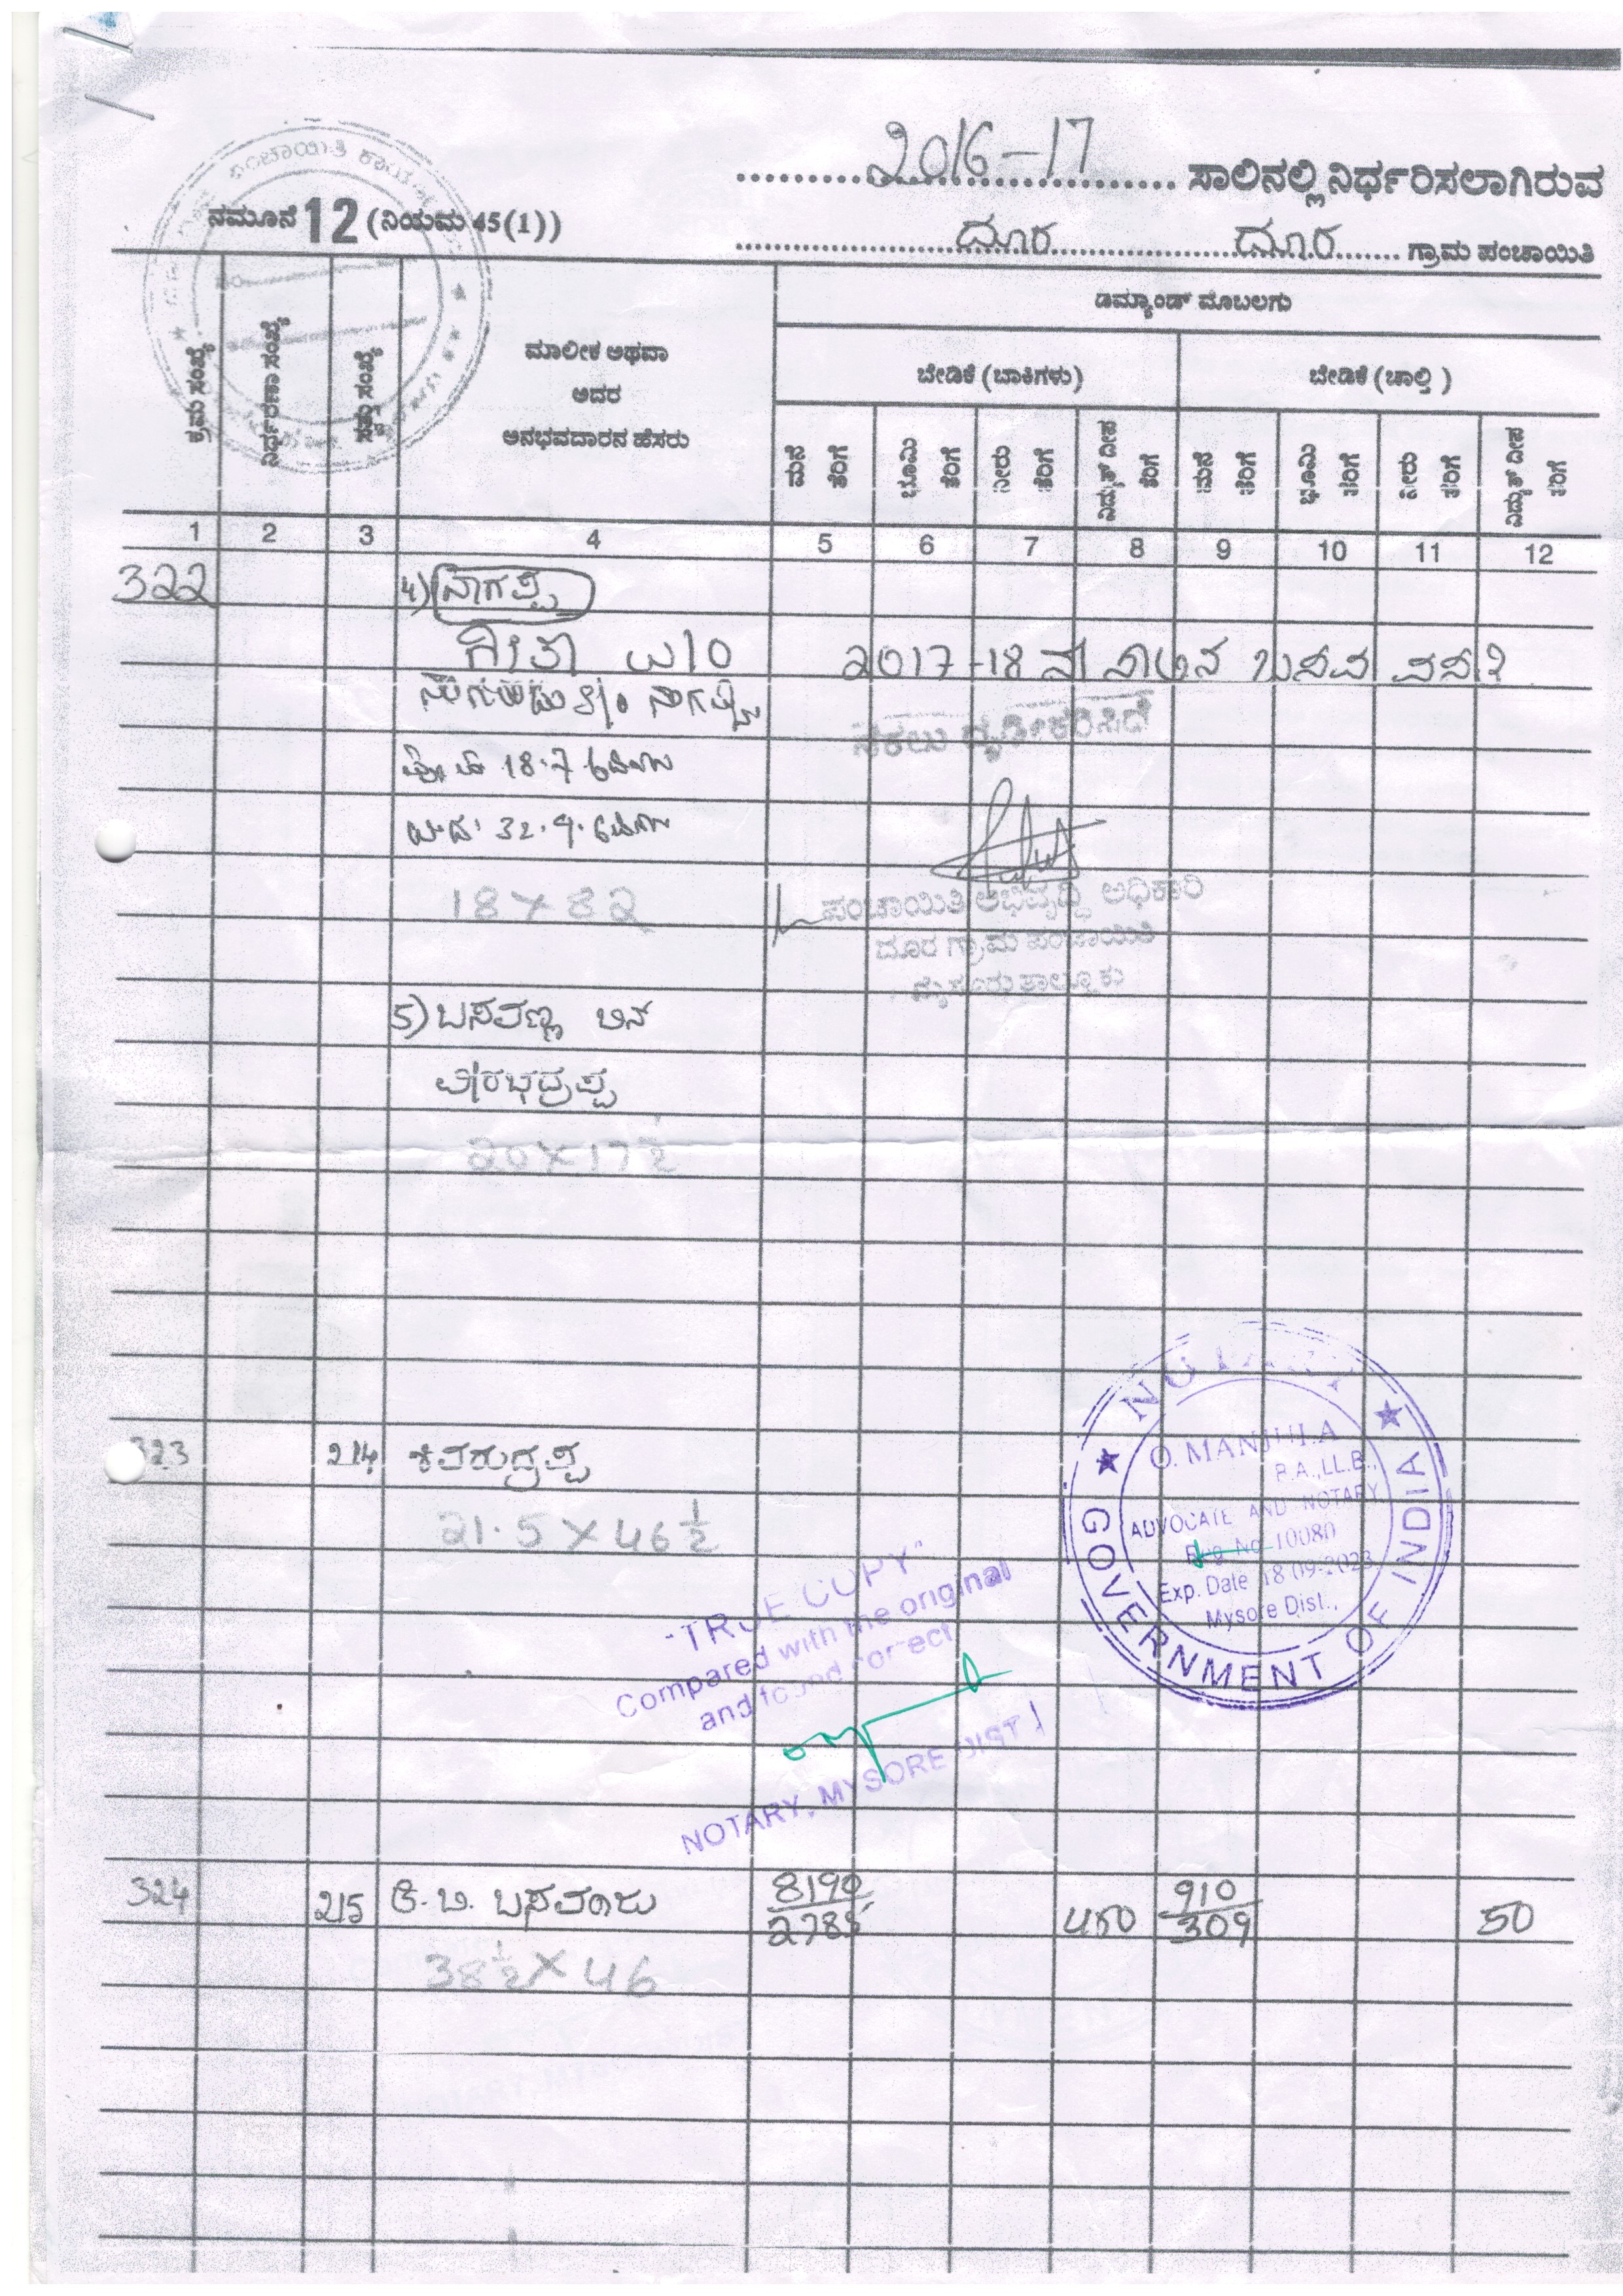 2016-17 ಸಾಲಿನಲ್ಲಿ ನಿರ್ಧರಿಸಲಾಗಿರುವ
ನಮೂನೆ 12 (ನಿಯಮ 45(1))
ದೂರ ದೂರ ಗ್ರಾಮ ಪಂಚಾಯಿತಿ
ಡಿಮ್ಯಾಂಡ್ ಮೊಬಲಗು
ಬೇಡಿಕೆ (ಬಾಕಿಗಳು) ಬೇಡಿಕೆ (ಚಾಲ್ತಿ)
ಕ್ರಮ ಸಂಖ್ಯೆ
ನಿರ್ಧರಣಾ ಸಂಖ್ಯೆ
ಸ್ವತ್ತು ಸಂಖ್ಯೆ
ಮಾಲೀಕ ಅಥವಾ
ಅದರ
ಅನಭವದಾರನ ಹೆಸರು
ಮನೆ ತೆರಿಗೆ
ಭೂಮಿ ತೆರಿಗೆ
ನೀರು ತೆರಿಗೆ
ವಿದ್ಯುತ್ ದೀಪ ತೆರಿಗೆ
ಮನೆ ತೆರಿಗೆ
ಭೂಮಿ ತೆರಿಗೆ
ನೀರು ತೆರಿಗೆ
ವಿದ್ಯುತ್ ದೀಪ ತೆರಿಗೆ
1 2 3 4 5 6 7 8 9 10 11 12
322 4) ನಾಗಪ್ಪ
ಗೀತಾ W/O 2017-18 ನೇ ಸಾಲಿನ ಬಸವ ವಸತಿ
S/o ನಾಗಪ್ಪ
ನಕಲು ದೃಢೀಕರಿಸಿದೆ
18.7
32.9
18 X 32
ಪಂಚಾಯಿತಿ ಅಭಿವೃದ್ಧಿ ಅಧಿಕಾರಿ
ದೂರ ಗ್ರಾಮ ಪಂಚಾಯಿತಿ
ಮೈಸೂರು ತಾಲ್ಲೂಕು
5) ಬಸವಣ್ಣ ಬಿನ್
ವೀರಭದ್ರಪ್ಪ
20 X 17 1/2
323 214 ಶಿವರುದ್ರಪ್ಪ
21.5 X 46 1/2
NOTARY
GOVERNMENT OF INDIA
O. MANJULA
B.A., LL.B.,
ADVOCATE AND NOTARY
Reg No 10080
Exp. Date 18 09-2023
Mysore Dist.,
"TRUE COPY"
Compared with the original
and found correct
NOTARY, MYSORE DIST.
324 215 ಬಸವರಾಜು 8190 450 910 50
2785 309
38 1/2 X 46